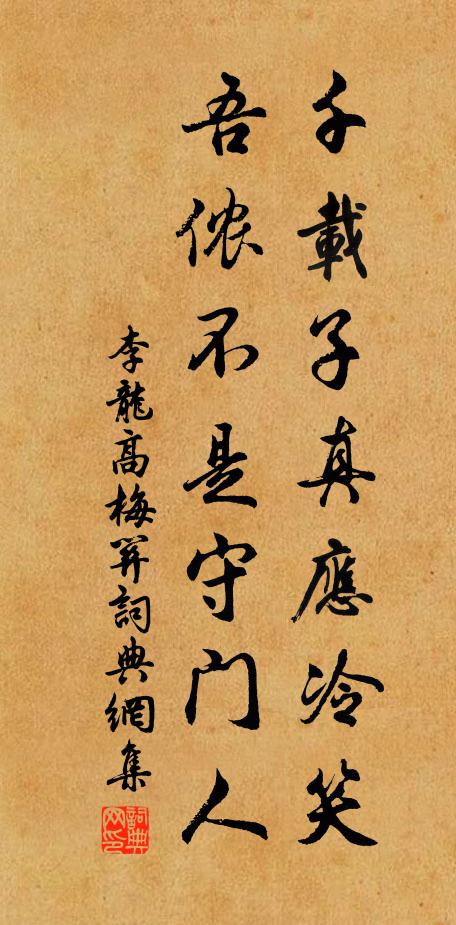 千載子真應冷笑
吾侬不是守门人
李龍高梅詞典網集
詞典网印